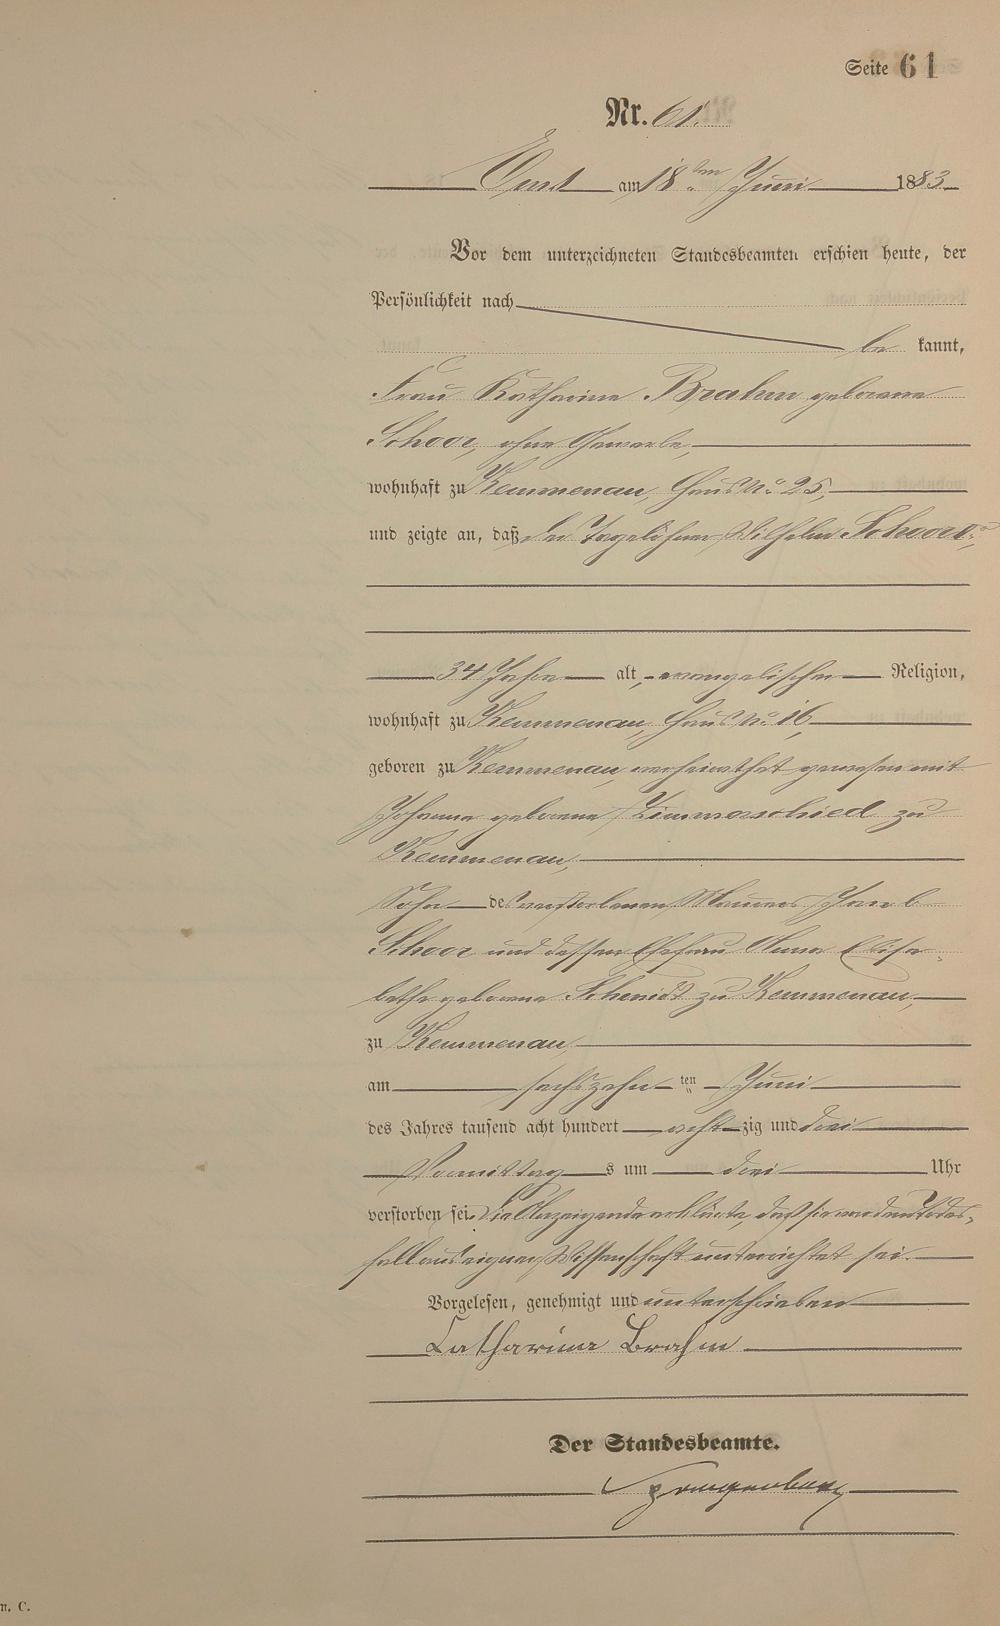 Seite 61
Nr. 61.
Ems am 18 ten Juni 1883
Vor dem unterzeichneten Standesbeamten erschien heute, der
Persönlichkeit nach
be kannt,
Frau Katharine Brahm geborene
Schoor, ohne Gewerbe,
wohnhaft zu Kemmenau, Haus No. 25,
und zeigte an, daß der Tagelöhner Wilhelm Schoor
34 Jahre alt, evangelischer Religion,
wohnhaft zu Kemmenau, Haus No. 16,
geboren zu Kemmenau, verheirathet gewesen mit
Johanna geborene Zimmerschied zu
Kemmenau,
Sohn des verstorbenen Maurers Jacob
Schoor und dessen Ehefrau Anna Elisa-
betha geborene Schmidt zu Kemmenau,
zu Kemmenau,
am sechszehn ten Juni
des Jahres tausend acht hundert acht zig und drei
Vormittag s um drei Uhr
verstorben sei. Die Anzeigende erklärte, daß sie von dem Todes-
fall aus eigner Wissenschaft unterrichtet sei.
Vorgelesen, genehmigt und unterschrieben
Catharina Brahm
Der Standesbeamte.
Spangenberg
n. C.